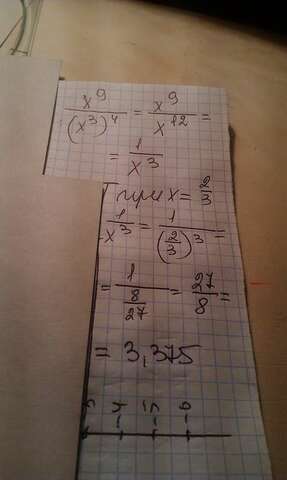 x⁹/(x³)⁴ = x⁹/x¹² =
= 1/x³
при x = 2/3
1/x³ = 1/(2/3)³ =
= 1/(8/27) = 27/8 =
= 3,375